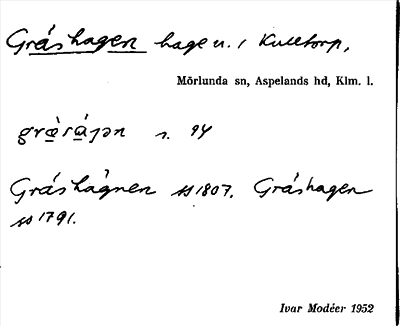 Gråshagen hage u. i Kulltorp,
Mörlunda sn, Aspelands hd, Klm. l.
græ̀rá̱ɟən s. 94
Gråshågnen ss 1807. Gråshagen
ss 1791.
Ivar Modéer 1952